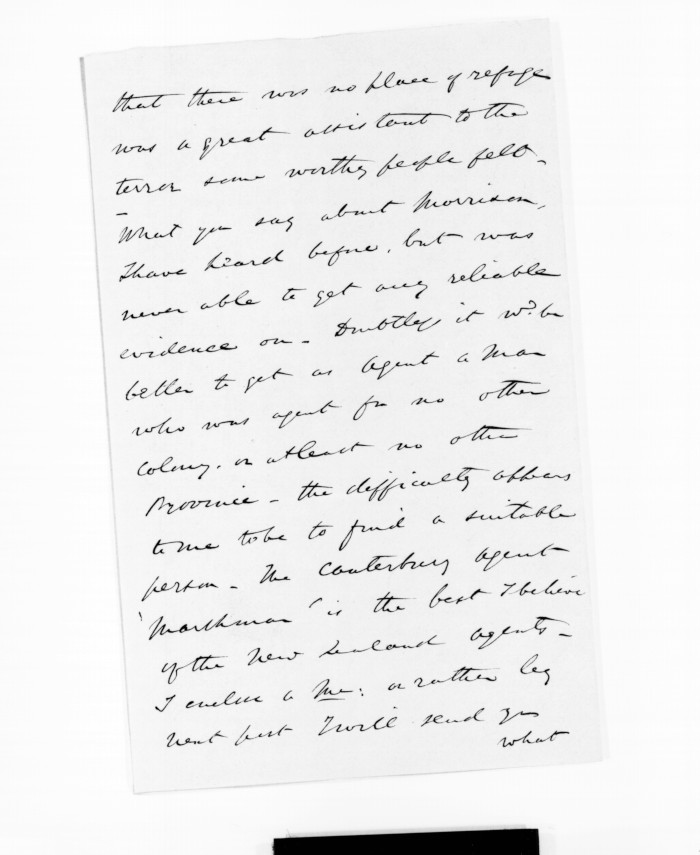 that there was no place of refuge
was a great assistant to the
terror some worthy people felt -
What you say about Morrison,
I have heard before, but was
never able to get any reliable
evidence on - Doubtless it wd. be
better to get as Agent a Man
who was agent for no other
Colony, or at least no other
Province - the difficulty appears
to me to be to find a suitable
person - The Canterbury Agent
'Marshman' is the best I believe
of the New Zealand agents -
I enclose a Me: or rather by
next post I will send you
what